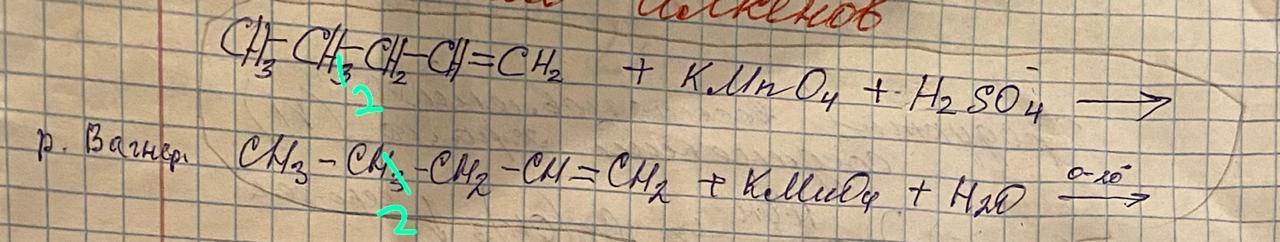 алкенов
CH₃-CH₃-CH₂-CH=CH₂ + KMnO₄ + H₂SO₄ →
2
р. Вагнер. CH₃-CH₃-CH₂-CH=CH₂ + KMnO₄ + H₂O 0-20° →
2